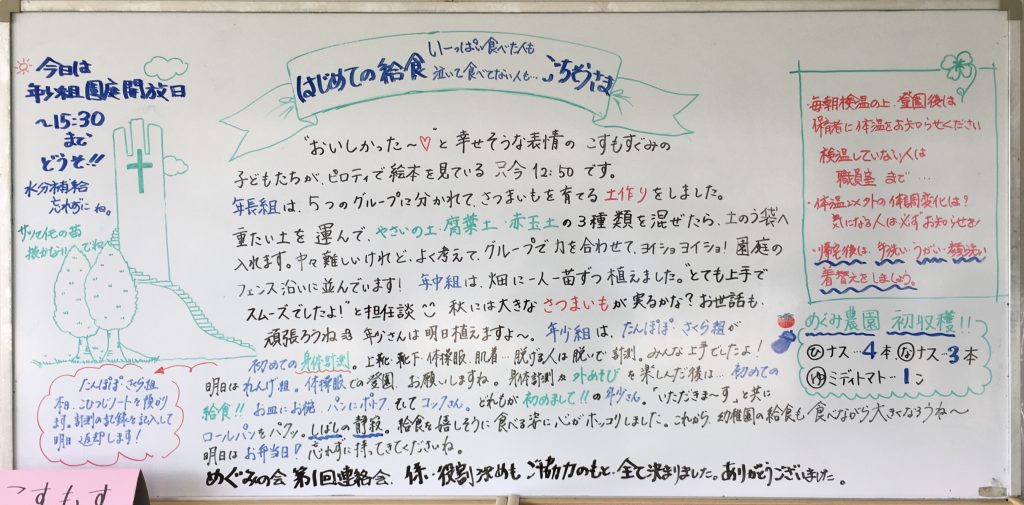 今日は
年少組園庭開放日
～15:30
まで
どうぞ!!
水分補給
忘れずにね。
はじめての給食
いーっぱい食べた人も
泣いて食べてない人も…
ごちそうさま
"おいしかった～♡"と幸せそうな表情の こすもすぐみの
子どもたちが、ピロティで絵本を見ている 只今12:50です。
年長組は、5つのグループに分かれて、さつまいもを育てる 土作りをしました。
重たい土を運んで、やさいの土・腐葉土・赤玉土の3種類を混ぜたら、土のう袋へ
入れます。中々難しいけれど、よく考えて、グループで力を合わせて、ヨイショヨイショ! 園庭の
フェンス沿いに並んでいます! 年中組は、畑に一人一苗ずつ植えました。"とても上手で
スムーズでしたよ!"と担任談 秋には大きな さつまいもが 実るかな? お世話も、
頑張ろうね 年少さんは明日植えますよ～。 年少組は、たんぽぽ さくら組が
初めての身体計測。上靴、靴下、体操服、肌着…脱げる人は脱いで計測。みんな上手でしたよ!
明日は れんげ組。体操服での登園 お願いしますね。身体計測&外あそびを楽しんだ後は… 初めての
給食!! お皿にお椀、パンにポトフ、そしてコックさん。どれもが初めまして!!の年少さん。"いただきま～す"と共に
ロールパンをパクッ。しばしの静寂。給食を嬉しそうに食べる姿に心がホッコリしました。これから、幼稚園の給食も食べながら大きくなろうね～
明日はお弁当日! 忘れずに持ってきてくださいね。
めぐみの会 第1回連絡会、係・役割決めも ご協力のもと、全て決まりました。ありがとうございました。
たんぽぽ さくら組
本日、こひつじノートを預かり
ます。計測の記録を記入して
明日返却します!
・毎朝検温の上、登園後は
保育者に体温をお知らせください
検温していない人は
職員室まで…
・体温以外の体調変化は?
気になる人は必ずお知らせを!
・帰宅後は、手洗い うがい 顔洗い
着替えをしましょう。
めぐみ農園 初収穫!!
ひ ナス…4本 な ナス…3本
ゆ ミディトマト…1コ
こすもす